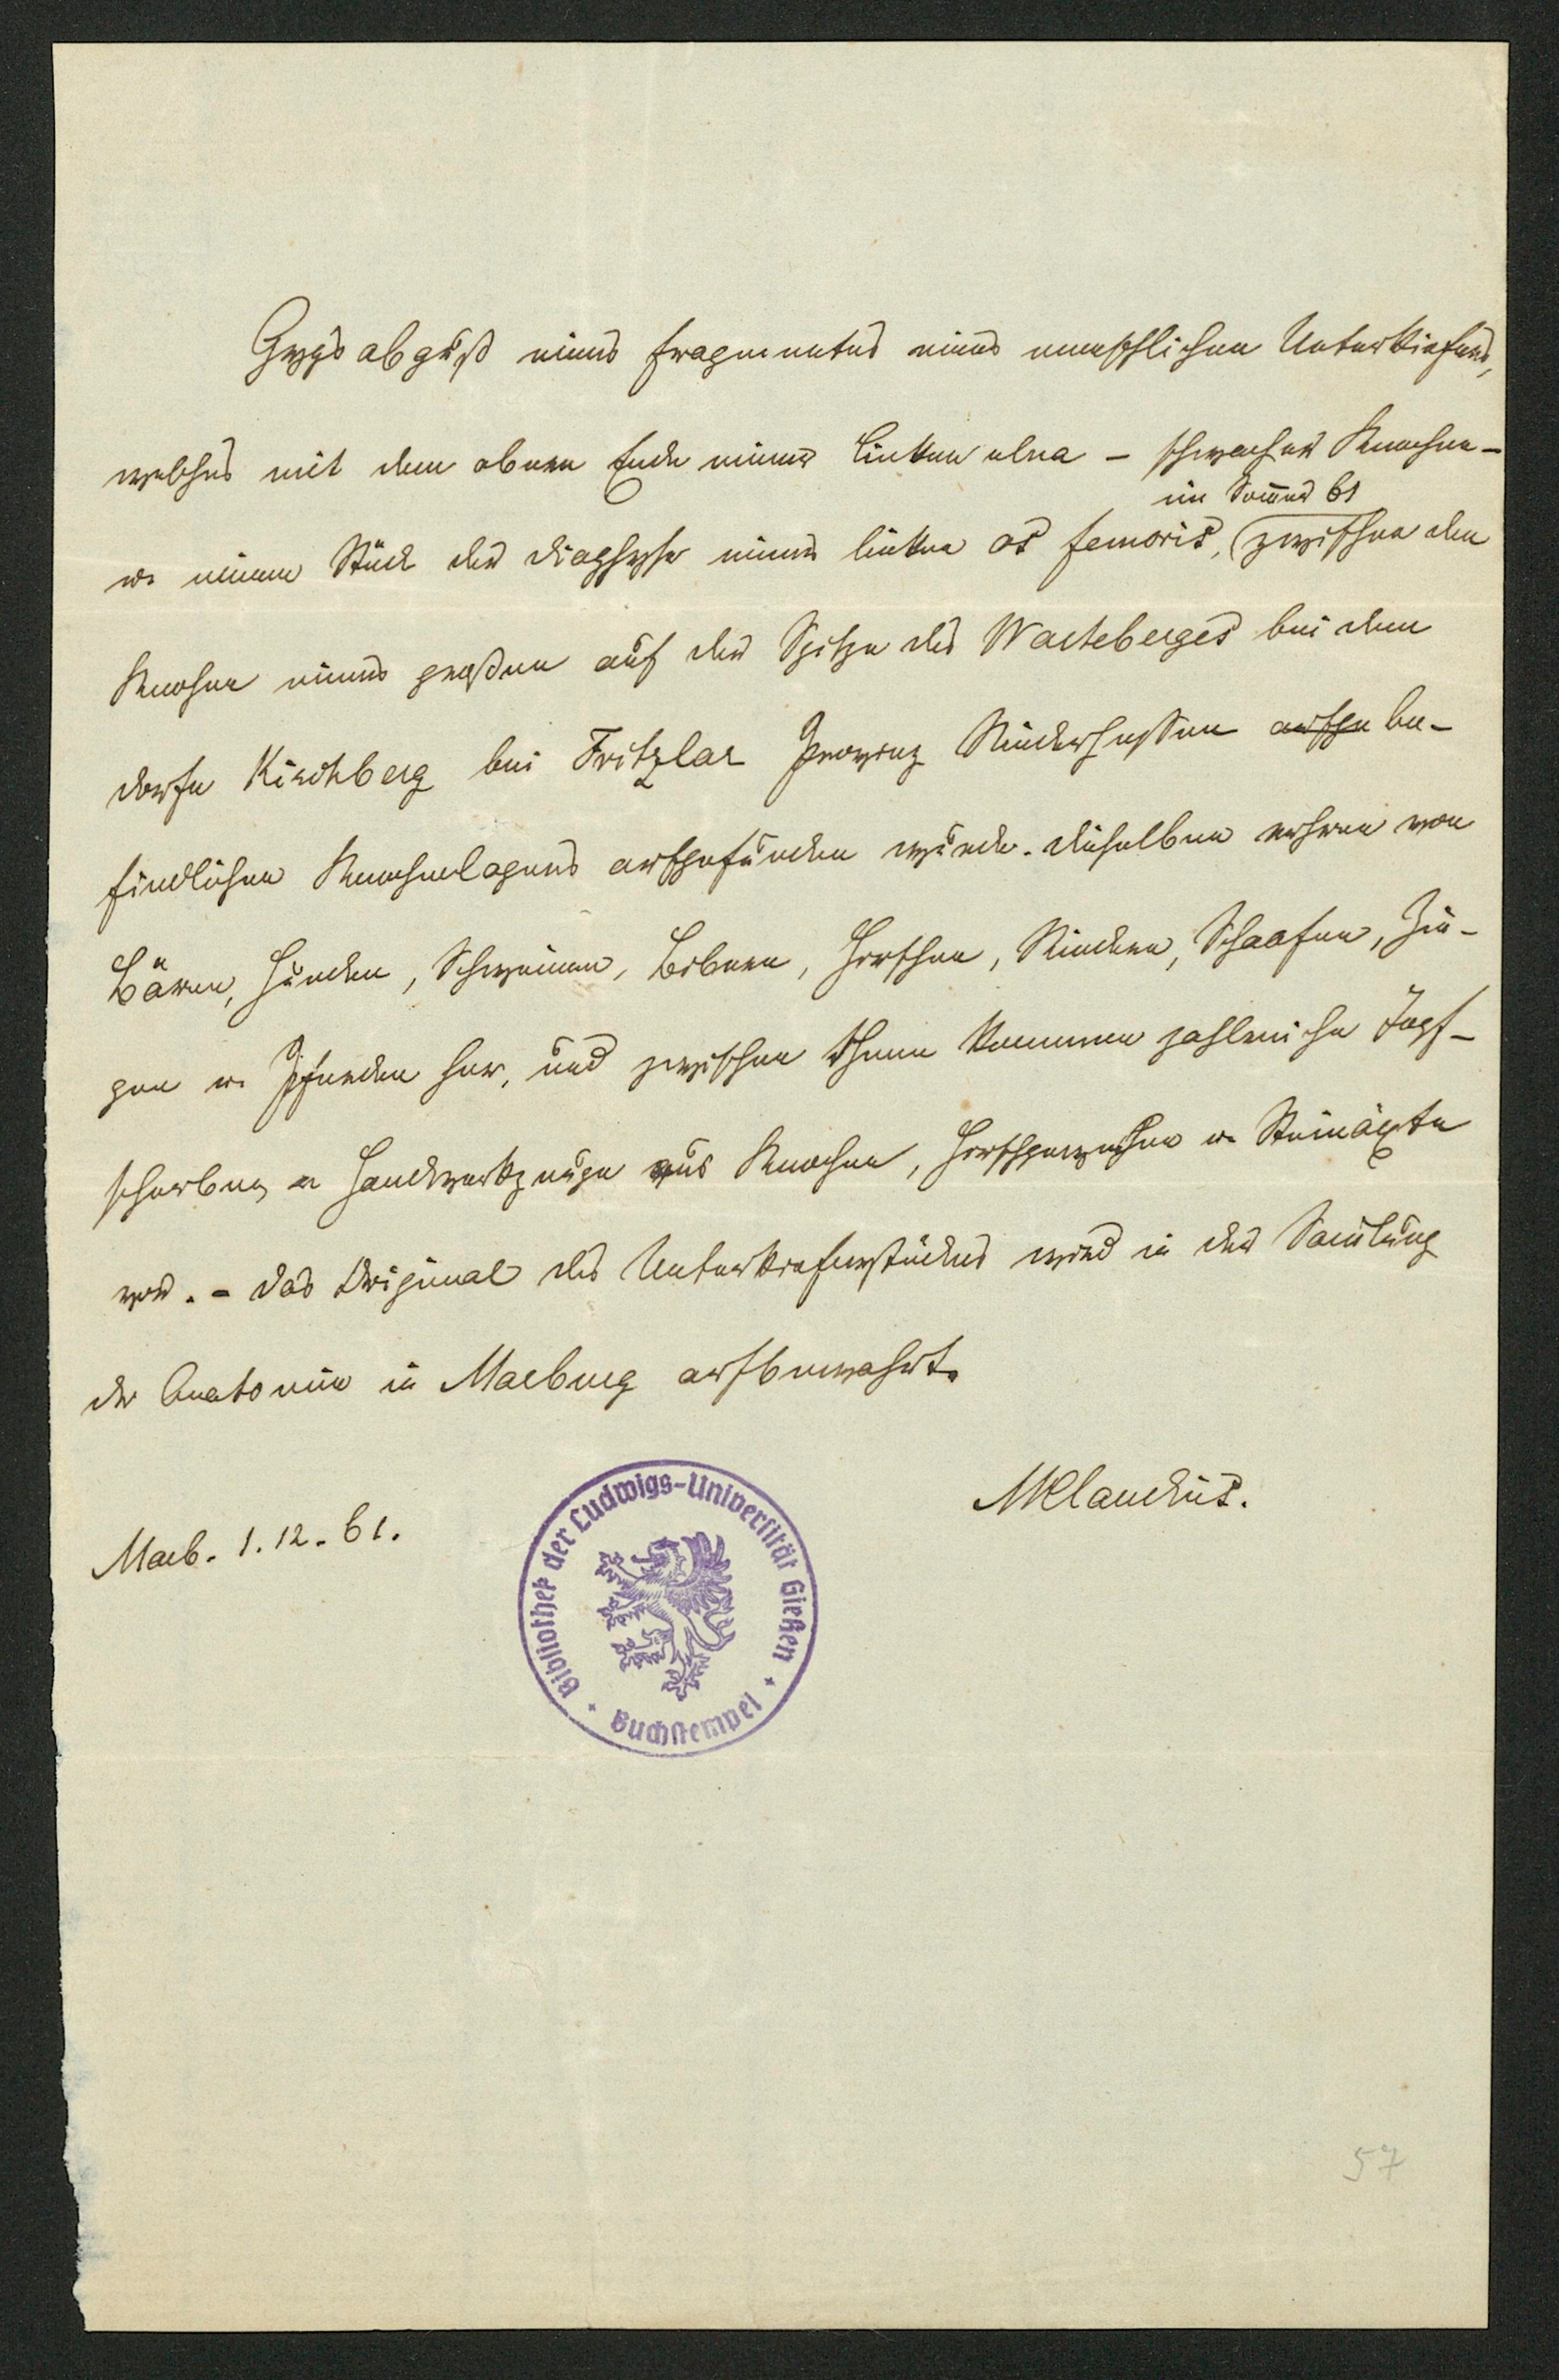 Gypsabguß eines Fragmentes eines menschlichen Unterkiefers,
welches mit dem oberen Ende einer linken ulna – schwacher Knochen –
im Somer 61
u. einem Stück der Diaphyse eines linken os femoris, zwischen den
Knochen eines großen auf der Spitze des Warteberges bei dem
Dorfe Kirchberg bei Fritzlar Provinz Niederhessen aufge be-
findlichen Knochenlagers aufgefunden wurde. Dieselben rühren von
Bären, Hunden, Schweinen, Bibern, Hirschen, Rindern, Schaafen, Zie-
gen u. Pferden her, und zwischen ihnen kommen zahlreiche Topf-
scherben, u Handwerkzeuge aus Knochen, Hirschgeweihen u. Steinäxte
vor. – Das Original des Unterkieferstückes wird in der Samlung
der Anatomie in Marburg aufbewahrt.
MClaudius.
Marb. 1. 12. 61.
Bibliothek der Ludwigs-Universität Gießen
Buchstempel
57